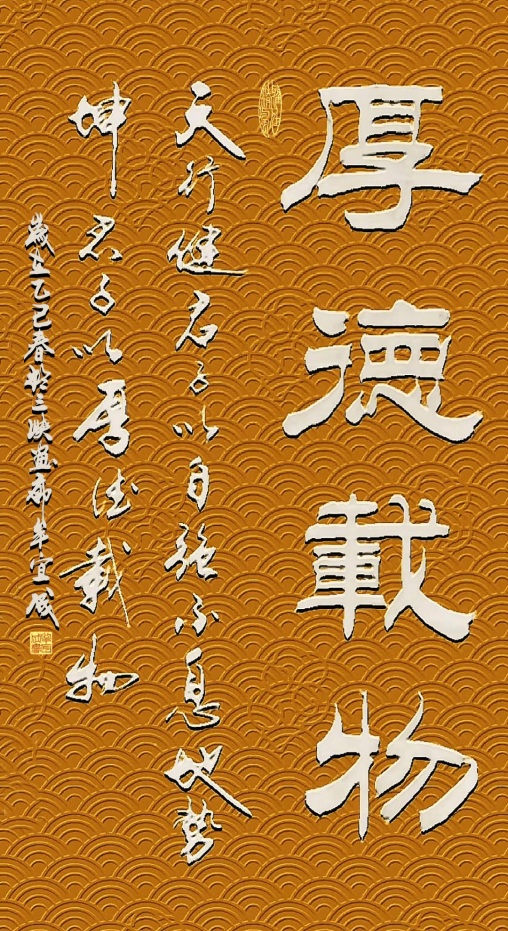 厚德載物
天行健君子以自強不息地勢
坤君子以厚德載物
歲在乙巳春於三峽畫廊牟宜